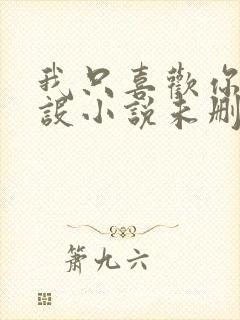 我只喜歡你
設小說未刪
簫九六